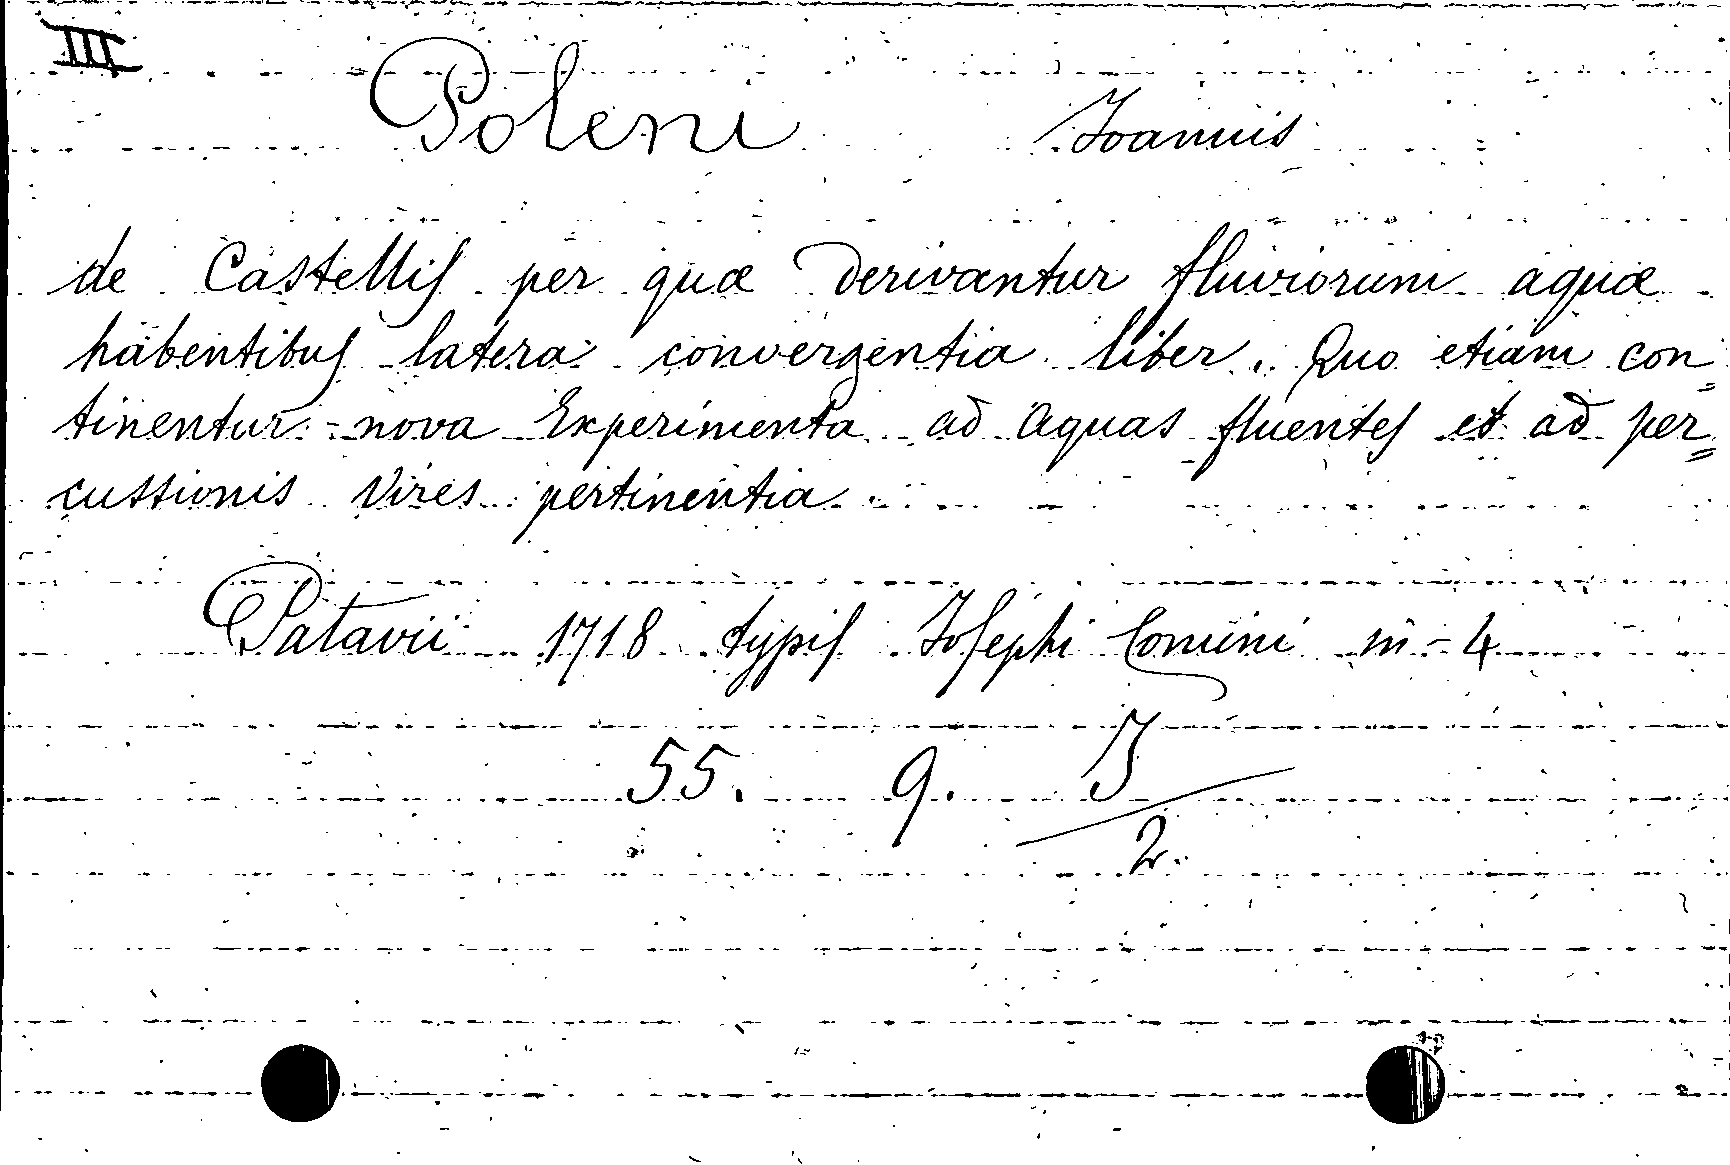 III
Poleni Joannis
de Castellis per quæ derivantur fluviorum aquæ
habentibus latera convergentia liber. Quo etiam con=
tinentur nova Experimenta ad aquas fluentes et ad per=
cussionis vires pertinentia.
Patavii 1718 typis Josephi Comini in-4
55. 9. J
2.